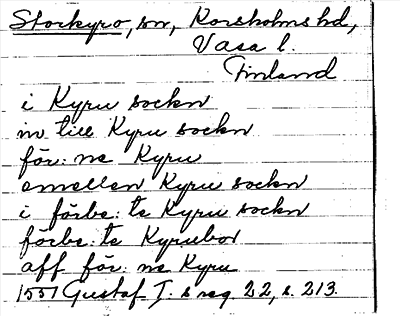 Storkyro, sn, Korsholms hd,
Vasa l.
Finland
i Kyru sockn
in till Kyru sockn
för: ne Kyru
emellan Kyru sockn
i förbe: te Kyru sockn
förbe: te Kyrubor
aff för: ne Kyru
1551 Gustaf I. s reg. 22, s. 213.